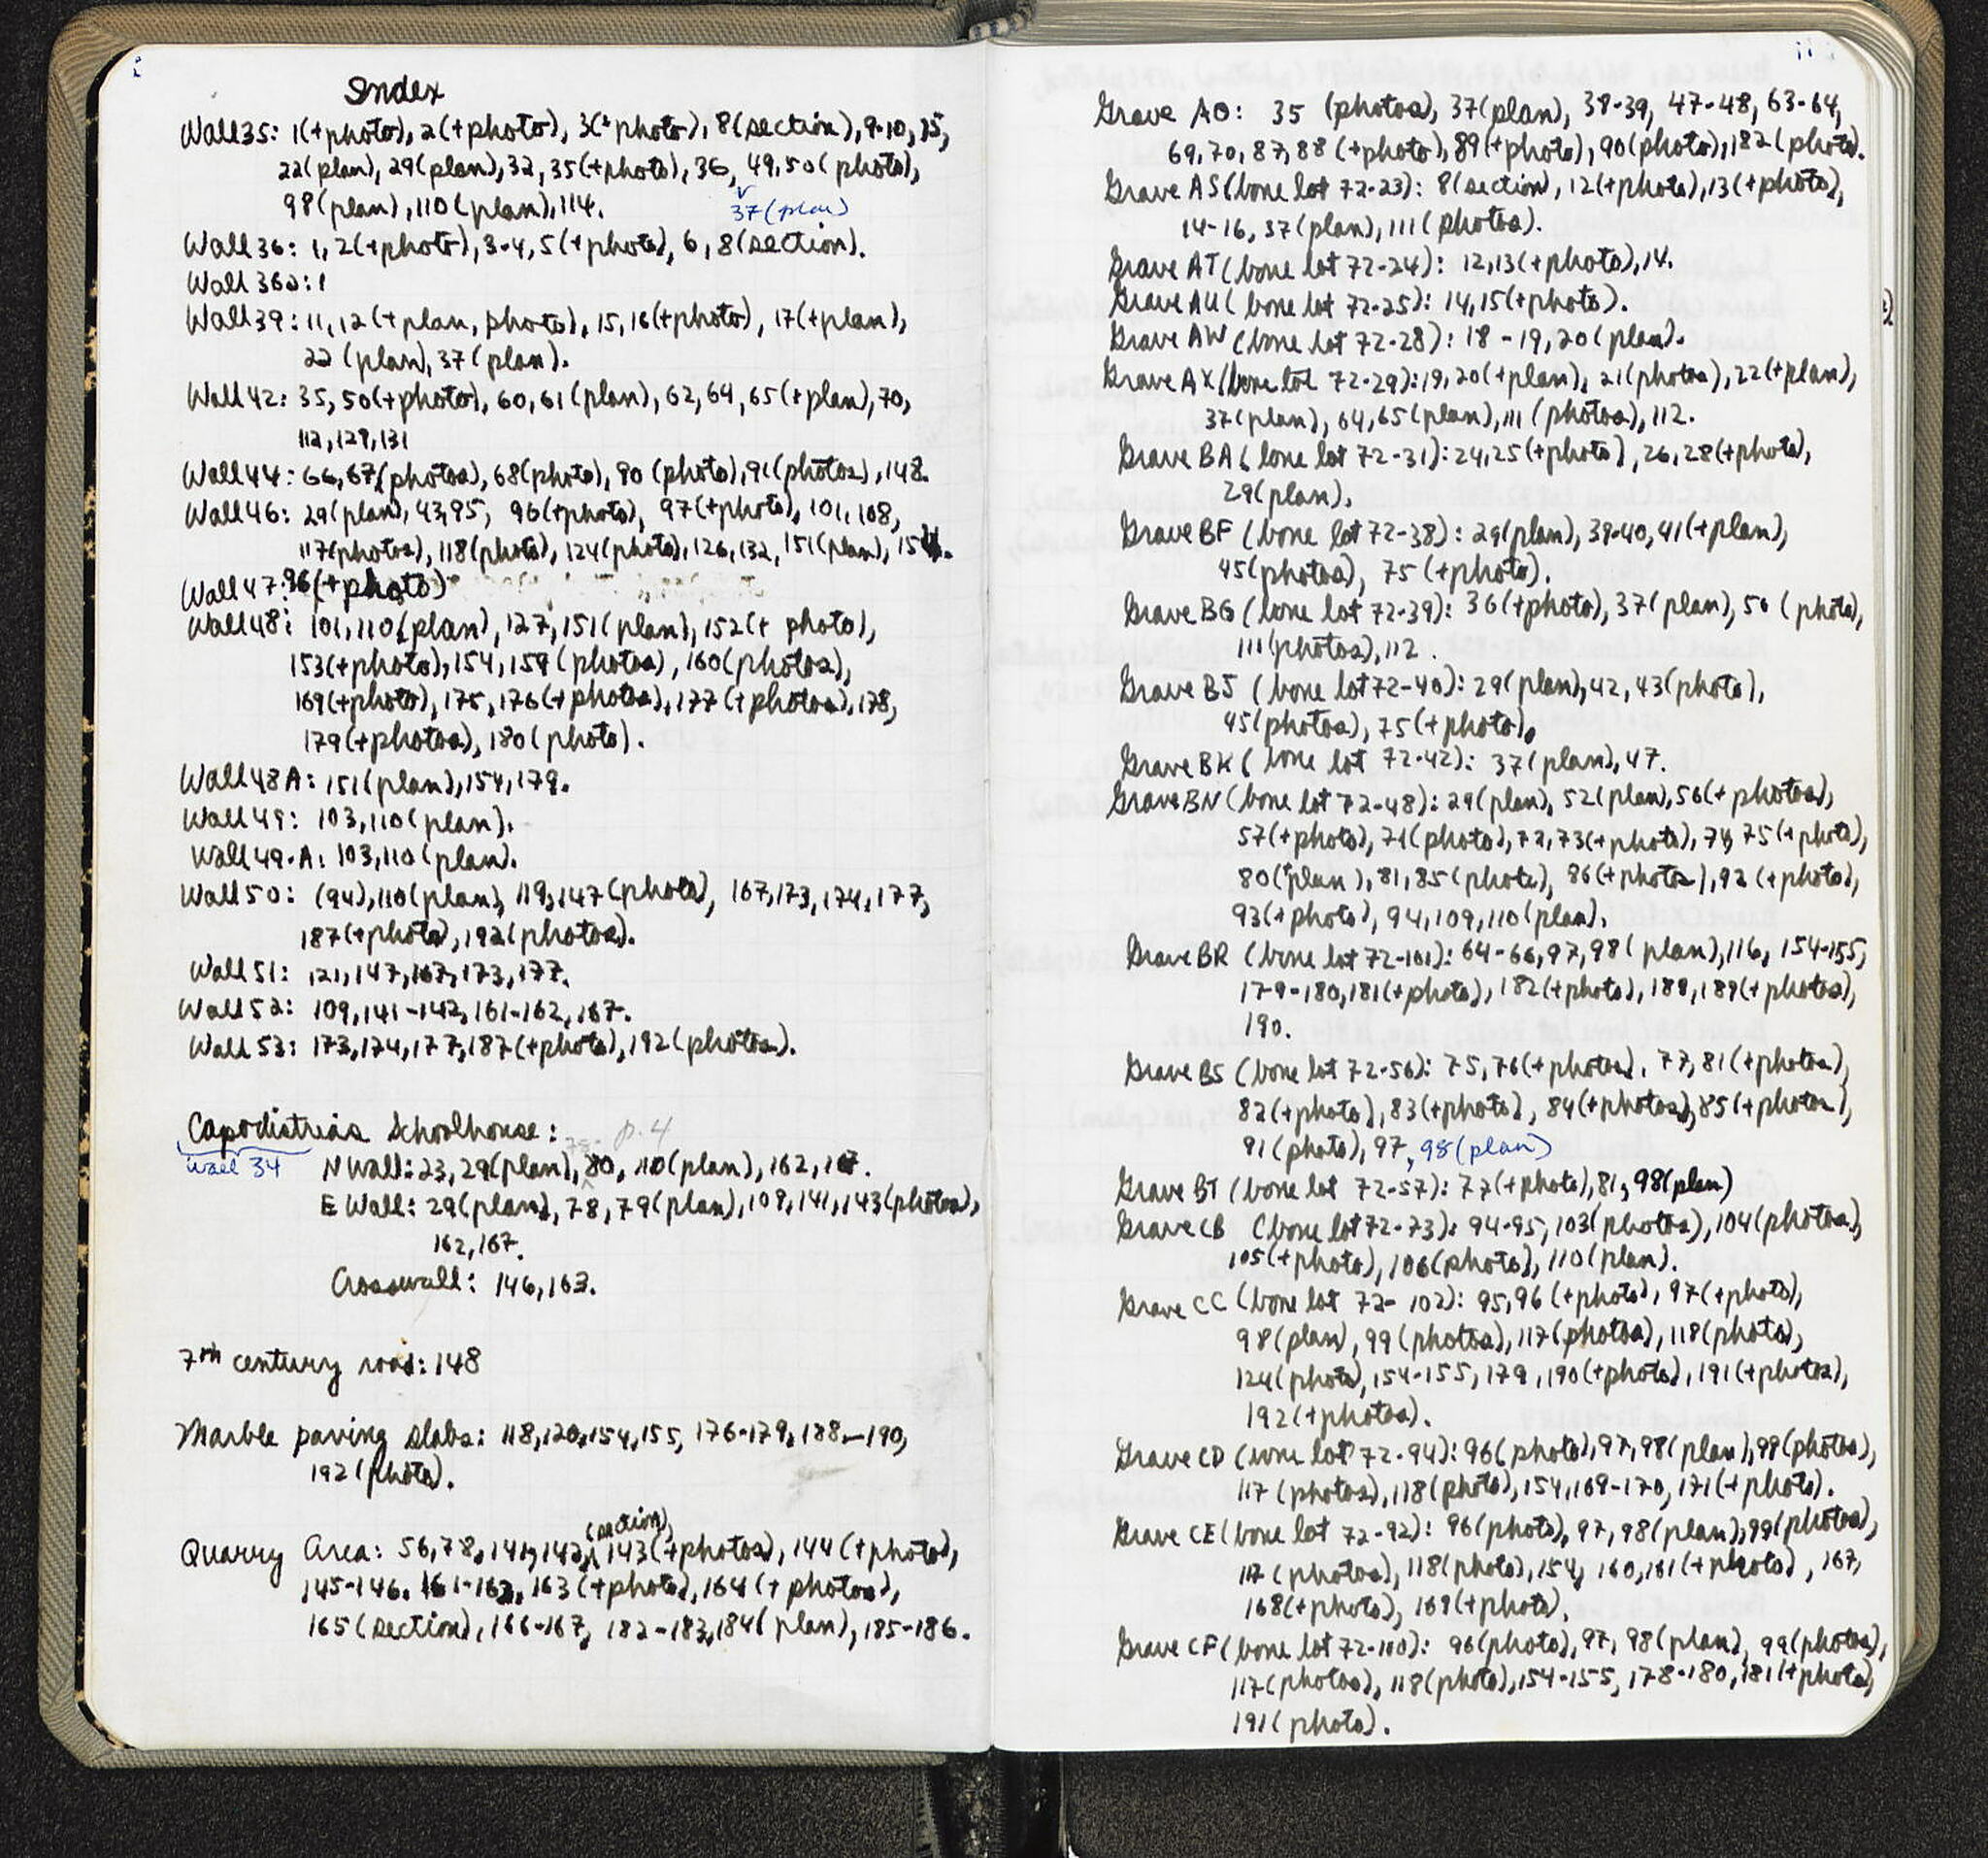 i
Index
Wall 35: 1(+photo), 2(+photo), 3(+photo), 8(section), 9-10, 15,
22(plan), 29(plan), 32, 35(+photo), 36, 49, 50(photo),
37(plan)
98(plan), 110(plan), 114.
Wall 36: 1, 2(+photo), 3-4, 5(+photo), 6, 8(section).
Wall 36a: 1
Wall 39: 11, 12(+plan, photo), 15, 16(+photo), 17(+plan),
22(plan), 37(plan).
Wall 42: 35, 50(+photo), 60, 61(plan), 62, 64, 65(+plan), 70,
112, 129, 131
Wall 44: 66, 67(photos), 68(photo), 90(photo), 91(photos), 148.
Wall 46: 29(plan), 43, 95, 96(+photo), 97(+photo), 101, 108,
117(photos), 118(photo), 124(photo), 126, 132, 151(plan), 154.
Wall 47: 96(+photo)
Wall 48: 101, 110(plan), 127, 151(plan), 152(+ photo),
153(+photo), 154, 159(photos), 160(photos),
169(+photo), 175, 176(+photos), 177(+photos), 178,
179(+photos), 180(photo).
Wall 48A: 151(plan), 154, 179.
Wall 49: 103, 110(plan).
Wall 49-A: 103, 110(plan).
Wall 50: (94), 110(plan), 119, 147(photo), 167, 173, 174, 177,
187(+photo), 192(photos).
Wall 51: 121, 147, 167, 173, 177.
Wall 52: 109, 141-142, 161-162, 167.
Wall 53: 173, 174, 177, 187(+photo), 192(photos).
Capodistrias Schoolhouse: p.4
Wall 34
N Wall: 23, 29(plan), 80, 110(plan), 162, 167.
E Wall: 29(plan), 78, 79(plan), 109, 141, 143(photos),
162, 167.
Crosswall: 146, 163.
7th century road: 148
Marble paving slabs: 118, 120, 154, 155, 176-179, 188-190,
192(photo).
Quarry Area: 56, 78, 141, 142, (section), 143(+photos), 144(+photo),
145-146, 161-162, 163(+photo), 164(+ photos),
165(section), 166-167, 182-183, 184(plan), 185-186.
ii
Grave AO: 35 (photos), 37(plan), 38-39, 47-48, 63-64,
69, 70, 87, 88(+photo), 89(+photo), 90(photo), 182(photo).
Grave AS (bone lot 72-23): 8(section), 12(+photo), 13(+photo),
14-16, 37(plan), 111(photos).
Grave AT (bone lot 72-24): 12, 13(+photo), 14.
Grave AU (bone lot 72-25): 14, 15(+photo).
Grave AW (bone lot 72-28): 18-19, 20(plan).
Grave AX (bone lot 72-29): 19, 20(+plan), 21(photos), 22(+plan),
37(plan), 64, 65(plan), 111(photos), 112.
Grave BA (bone lot 72-31): 24, 25(+photo), 26, 28(+photo),
29(plan).
Grave BF (bone lot 72-38): 29(plan), 39-40, 41(+plan),
45(photos), 75(+photo).
Grave BG (bone lot 72-39): 36(+photo), 37(plan), 50(photo),
111(photos), 112.
Grave BJ (bone lot 72-40): 29(plan), 42, 43(photo),
45(photos), 75(+photo).
Grave BK (bone lot 72-42): 37(plan), 47.
Grave BN (bone lot 72-48): 29(plan), 52(plan), 56(+photos),
57(+photo), 71(photo), 72, 73(+photo), 74, 75(+photo),
80(+plan), 81, 85(photo), 86(+photos), 92(+photo),
93(+photo), 94, 109, 110(plan).
Grave BR (bone lot 72-101): 64-66, 97, 98(plan), 116, 154-155,
179-180, 181(+photo), 182(+photo), 188, 189(+photos),
190.
Grave BS (bone lot 72-56): 75, 76(+photos), 77, 81(+photos),
82(+photo), 83(+photo), 84(+photos), 85(+photos),
91(photo), 97, 98(plan)
Grave BT (bone lot 72-57): 77(+photo), 81, 98(plan)
Grave CB (bone lot 72-73): 94-95, 103(photos), 104(photos),
105(+photo), 106(photo), 110(plan).
Grave CC (bone lot 72-102): 95, 96(+photo), 97(+photo),
98(plan), 99(photos), 117(photos), 118(photo),
124(photo), 154-155, 179, 190(+photo), 191(+photos),
192(+photos).
Grave CD (bone lot 72-94): 96(photo), 97, 98(plan), 99(photos),
117(photos), 118(photo), 154, 169-170, 171(+photo).
Grave CE (bone lot 72-92): 96(photo), 97, 98(plan), 99(photos),
117(photos), 118(photo), 154, 160, 161(+photo), 167,
168(+photo), 169(+photo).
Grave CF (bone lot 72-100): 96(photo), 97, 98(plan), 99(photos),
117(photos), 118(photo), 154-155, 178-180, 181(+photo),
191(photo).